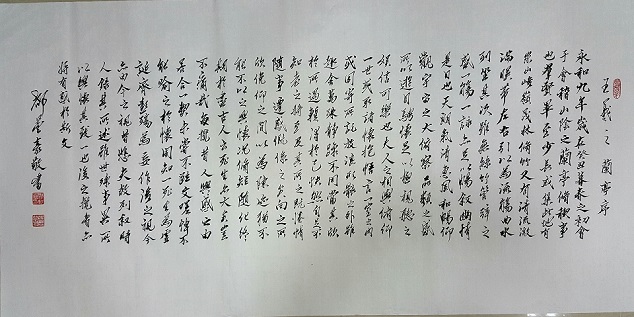 王羲之蘭亭序
永和九年歲在癸丑暮春之初會
于會稽山陰之蘭亭脩稧事
也羣賢畢至少長咸集此地有
崇山峻領茂林脩竹又有清流激
湍暎帶左右引以為流觴曲水
列坐其次雖無絲竹管弦之
盛一觴一詠亦足以暢敘幽情
是日也天朗氣清惠風和暢仰
觀宇宙之大俯察品類之盛
所以遊目騁懷足以極視聽之
娛信可樂也夫人之相與俯仰
一世或取諸懷抱悟言一室之內
或因寄所託放浪形骸之外雖
趣舍萬殊靜躁不同當其欣
於所遇暫得於己快然自足不
知老之將至及其所之既惓情
隨事遷感慨係之矣向之所
欣俛仰之間以為陳迹猶不
能不以之興懷況脩短隨化終
期於盡古人云死生亦大矣豈
不痛哉每攬昔人興感之由
若合一契未嘗不臨文嗟悼不
能喻之於懷固知死生為虛
誕齊彭殤為妄作後之視今
亦由今之視昔悲夫故列敘時
人錄其所述雖世殊事異所
以興懷其致一也後之攬者亦
將有感於斯文
敬書